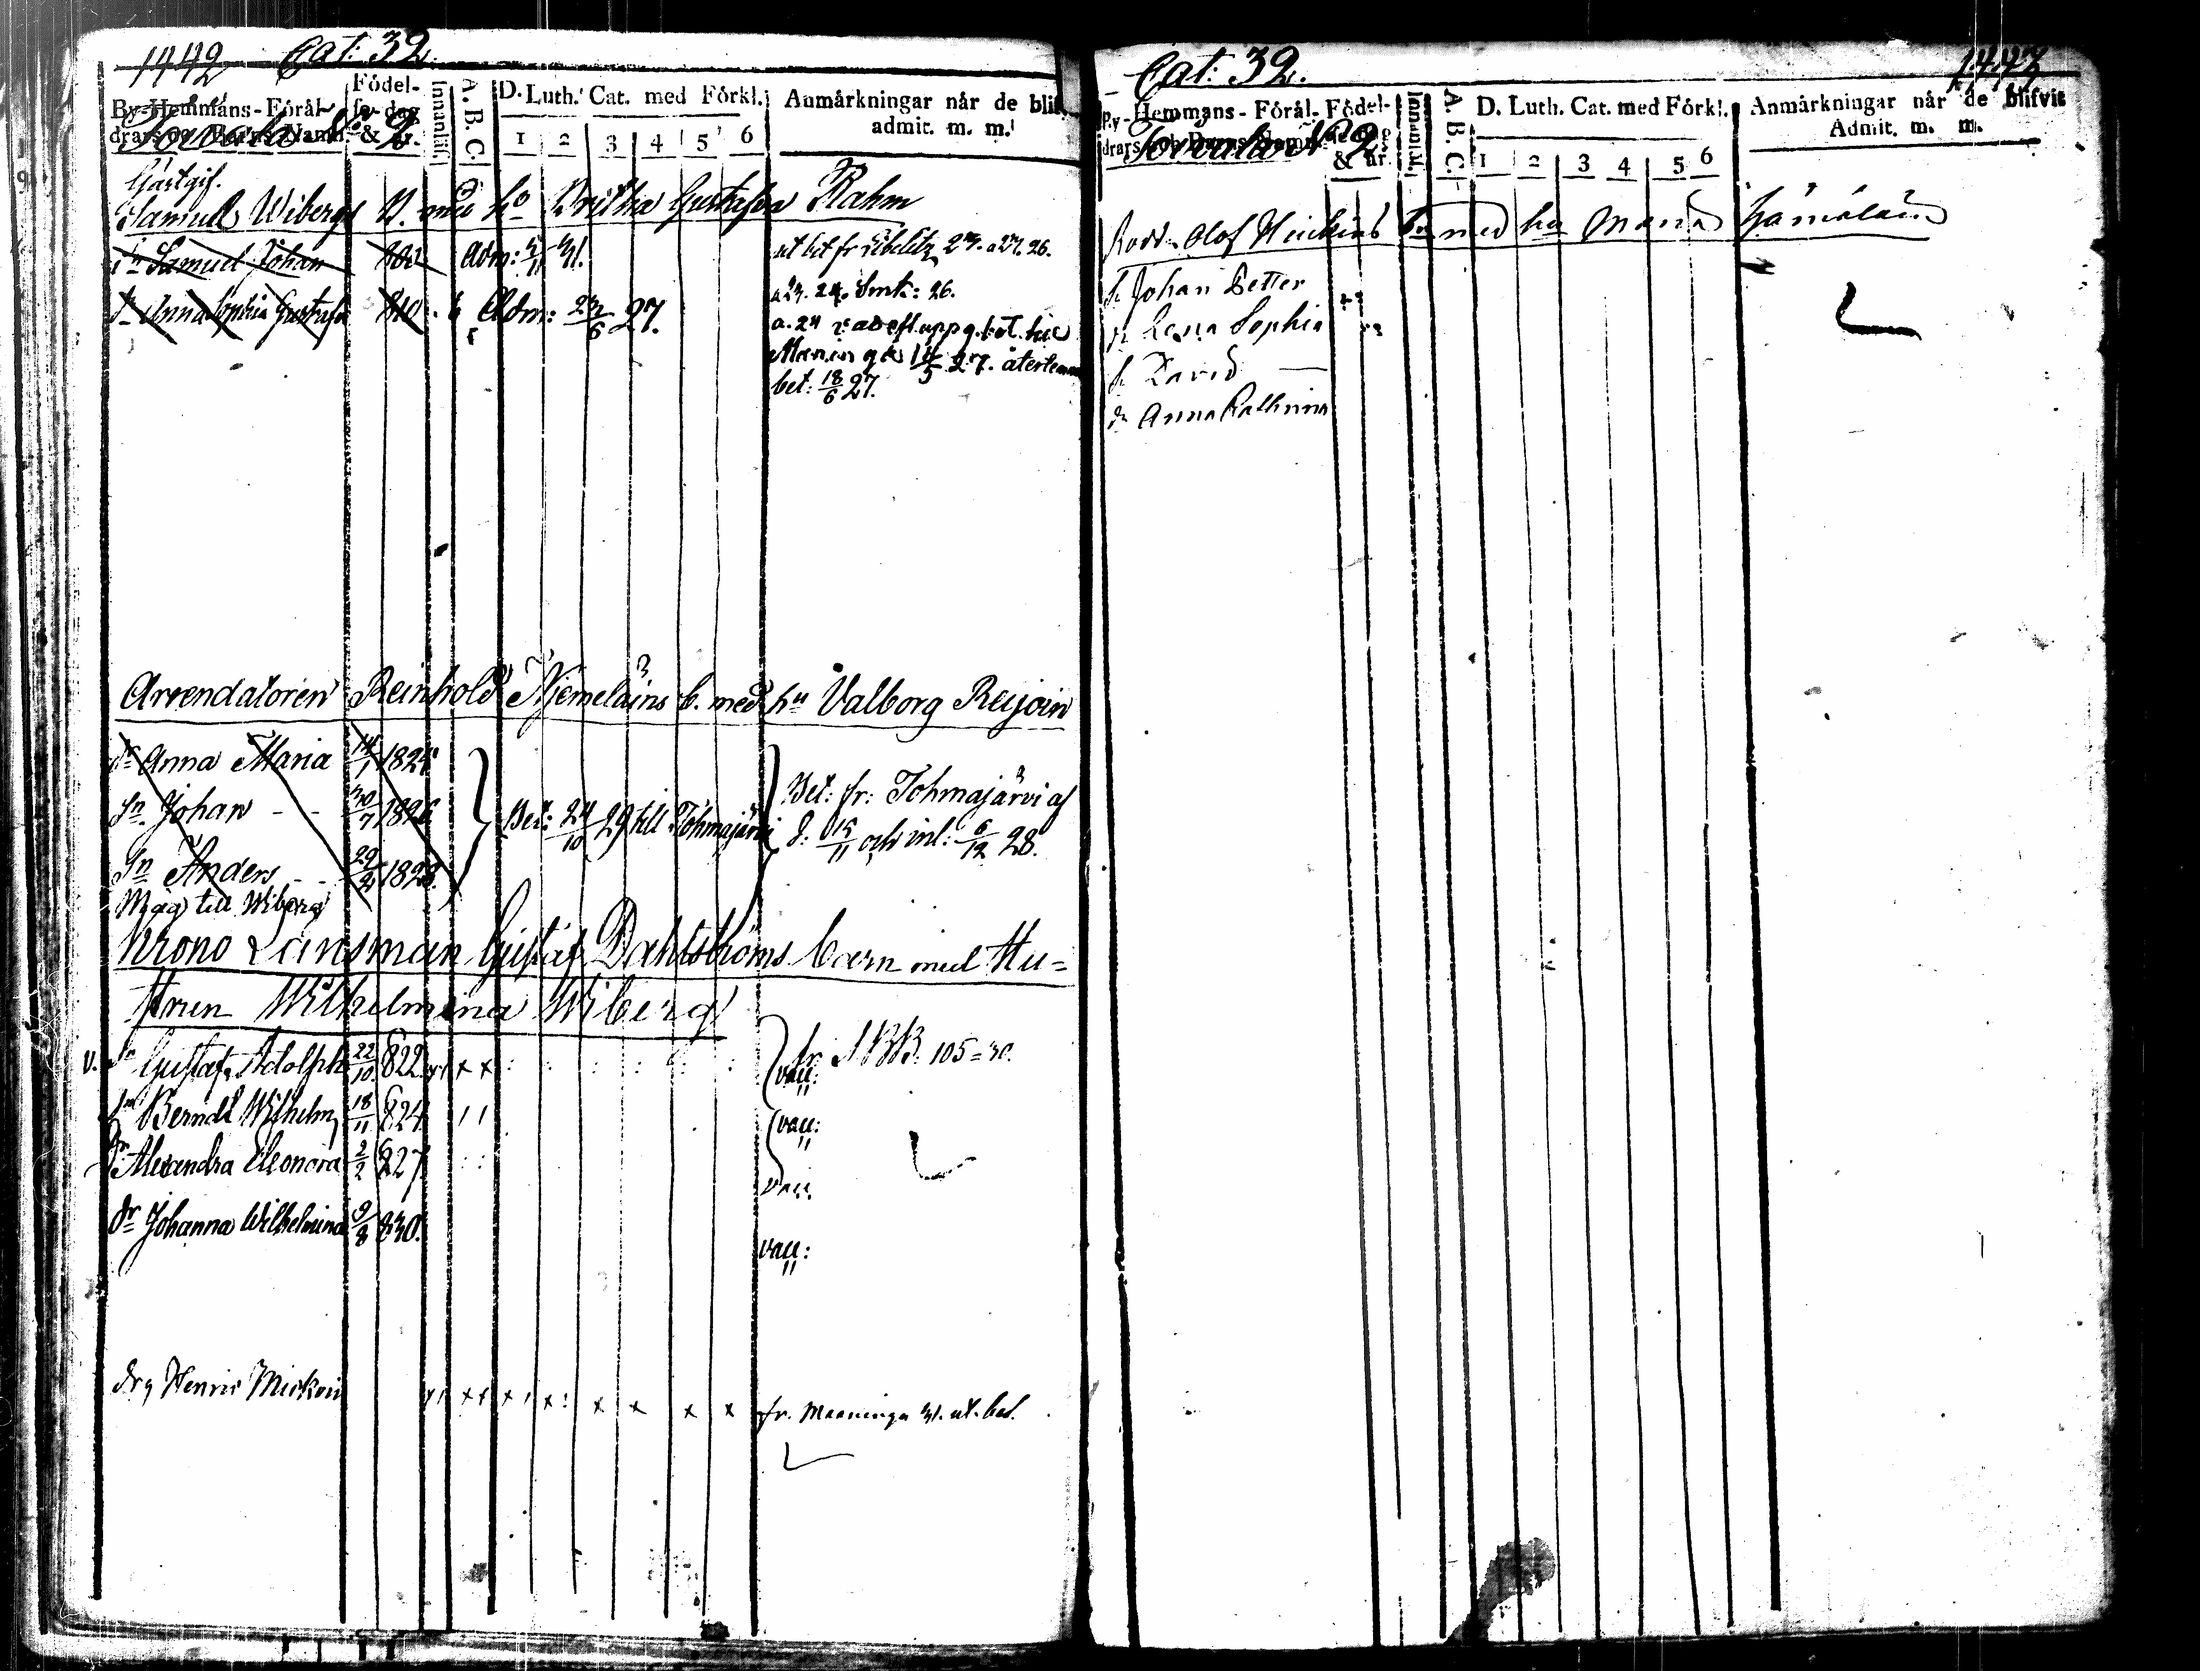 1442 Cat: 32.
By-Hemmans-Föräl-
drars och Barns Namn.
Födel-
se-dag
& år.
Innanläs.
A. B. C.
D. Luth. Cat. med Förkl.
1 2 3 4 5 6
Anmärkningar når de blif.
admit. m. m.
No 2.
Gästgif.
Samuel Wibergs B. med ho Britha Gustafva Rahm
Sn Samuel Johan 80 Adm: 31.
dr Anna Sophia Gustafva 810 Adm: 24/6 27.
ut bet fr Libelitz 23. a 24. 26.
a 23. 24. Smt: 26.
a. 24
18/6 27.
bet:
Arrendatoren Reinhold Njemeläins b. med hu Valborg Reijoin
dr Anna Maria 14/1 1825
Sn Johan - - 30/7 1826
Sn Anders - - 29/2 1828.
Bet: 24/10 29 till Tohmajärvi
Bet: fr: Tohmajärvi af
d: 15/11 och inl: 6/12 28.
Måg till Wiberg
Krono Länsman Gustaf Dahlströms barn med Hu-
strun Wilhelmina Wiberg
v. Sn Gustaf Adolph 22/10 822
fr SBB: 105=30.
vacc:
Sn Berndt Wilhelm 18/11 824
vacc:
dr Alexandra Eleonora 2/2 827
vacc:
dr Johanna Wilhelmina 9/8 830.
vacc:
drg Henric Mickoin x x x x x x x x fr. Maaninga 31. ut. bet.
Cat: 32. 1443
By-Hemmans-Föräl-
drars och Barns Namn.
Födel-
se
& år.
Innanläs.
A. B. C.
D. Luth. Cat. med Förkl.
1 2 3 4 5 6
Anmärkningar når de blifvit
Admit. m. m.
No 2
Olof med hu Maria Hämäläin
S. Johan Petter
dr Lena Sophia
S. David
dr Anna Cathrina